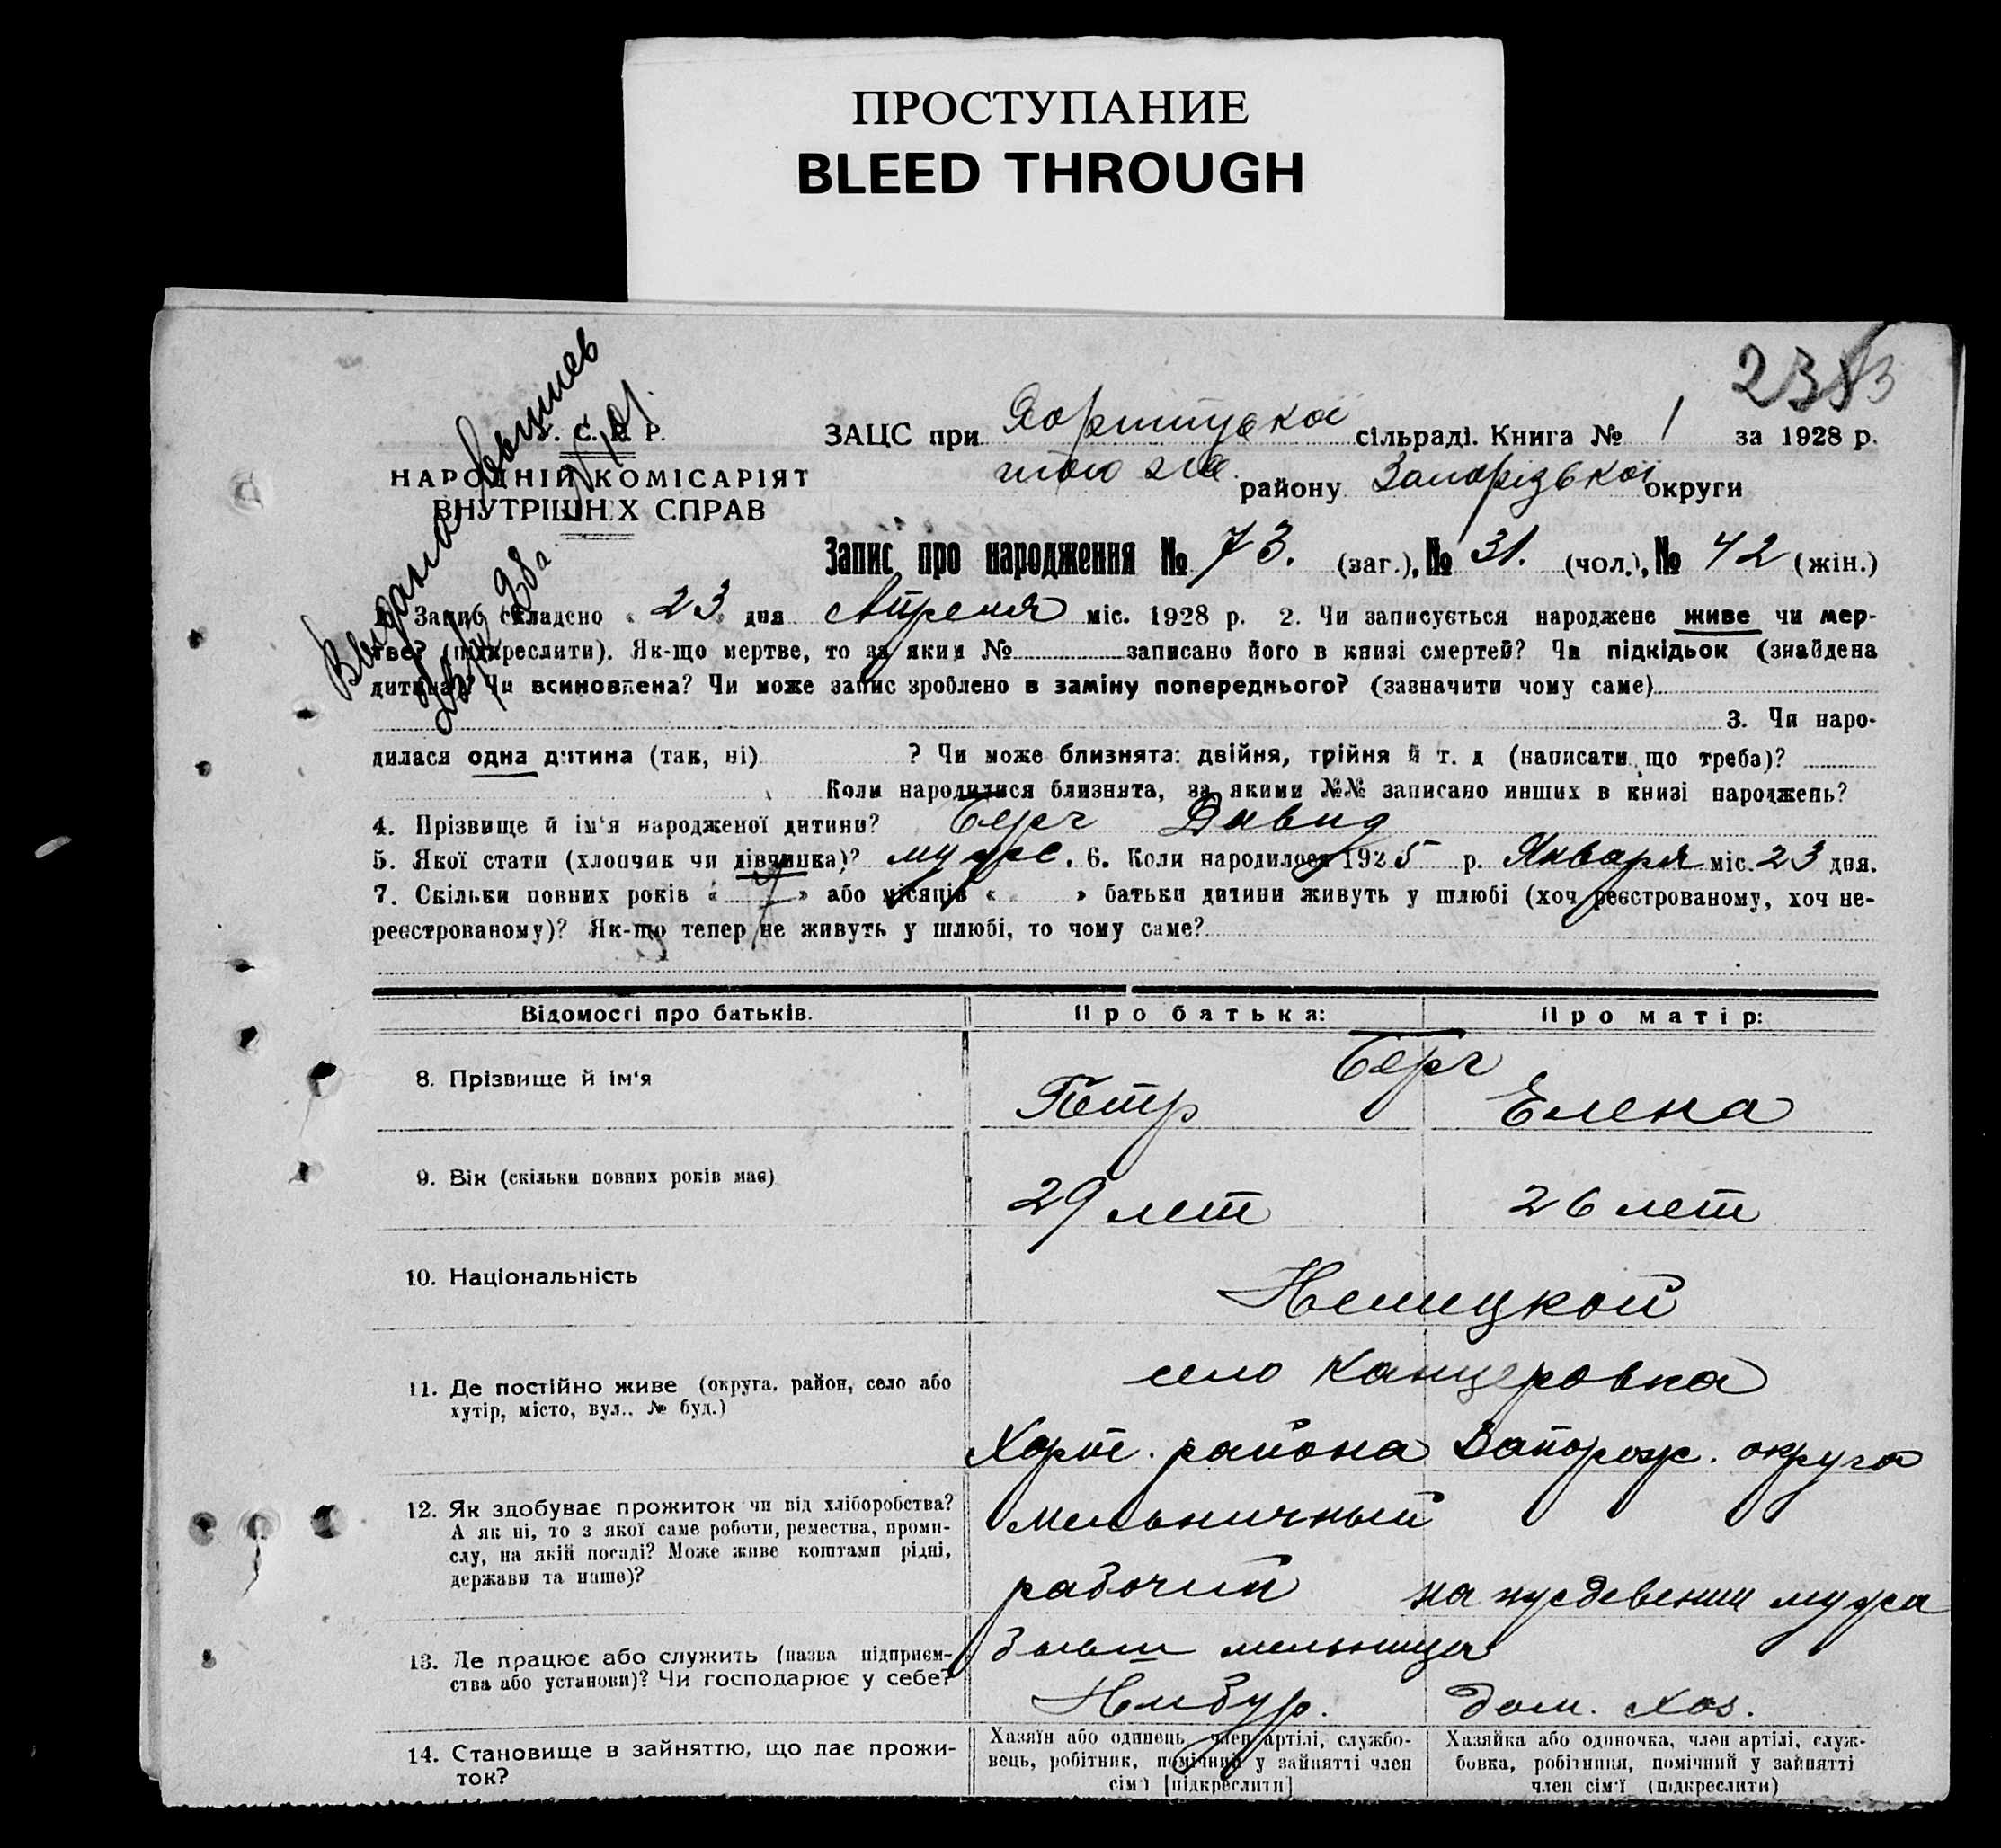 ПРОСТУПАНИЕ
BLEED THROUGH
2383
Выдана
У. С. Р. Р.
НАРОДНІЙ КОМІСАРІЯТ
ВНУТРІШНІХ СПРАВ
ЗАЦС при Хортицької сільраді. Книга № 1 за 1928 р.
того ж району Запорізької округи
Запис про народження № 73. (заг.), № 31. (чол.), № 42 (жін.)
1. Запис складено « 23 » дня Апреля міс. 1928 р. 2. Чи записується народжене живе чи мер-
тве? (підкреслити). Як-що мертве, то за яким № записано його в книзі смертей? Чи підкідьок (знайдена
дитина)? Чи всиновлена? Чи може запис зроблено в заміну попереднього? (зазначити чому саме)
3. Чи наро-
дилася одна дитина (так, ні) ? Чи може близнята: двійня, трійня й т. д (написати що треба)?
Коли народилися близнята, за якими №№ записано инших в книзі народжень?
4. Прізвище й ім'я народженої дитини? Берг Давид
5. Якої стати (хлопчик чи дівчинка)? мужс. 6. Коли народилося 1925 р. Января міс. 23 дня.
7. Скільки повних років « 7 » або місяців « » батьки дитини живуть у шлюбі (хоч реєстрованому, хоч не-
реєстрованому)? Як-що тепер не живуть у шлюбі, то чому саме?
Відомості про батьків. Про батька: Про матір:
Берг
8. Прізвище й ім'я Петр Елена
9. Вік (скільки повних років має) 29 лет 26 лет
10. Національність Немецкой
11. Де постійно живе (округа, район, село або хутір, місто, вул., № буд.) село Канцеровка
Хорт. района Запорож. округа
12. Як здобуває прожиток чи від хліборобства? Мельничный
А як ні, то з якої саме роботи, ремества, проми-
слу, на якій посаді? Може живе коштами рідні,
держави та инше)? рабочий на иждевении мужа
13. Де працює або служить (назва підприєм-
ства або установи)? Чи господарює у себе? мельница
Нибур. дом. хоз.
14. Становище в зайняттю, що дає прожи-
ток?
Хазяїн або одинець, член артілі, службо-
вець, робітник, помічний у зайнятті член
сім'ї [підкреслити]
Хазяйка або одиночка, член артілі, служ-
бовка, робітниця, помічний у зайнятті
член сім'ї (підкреслити)